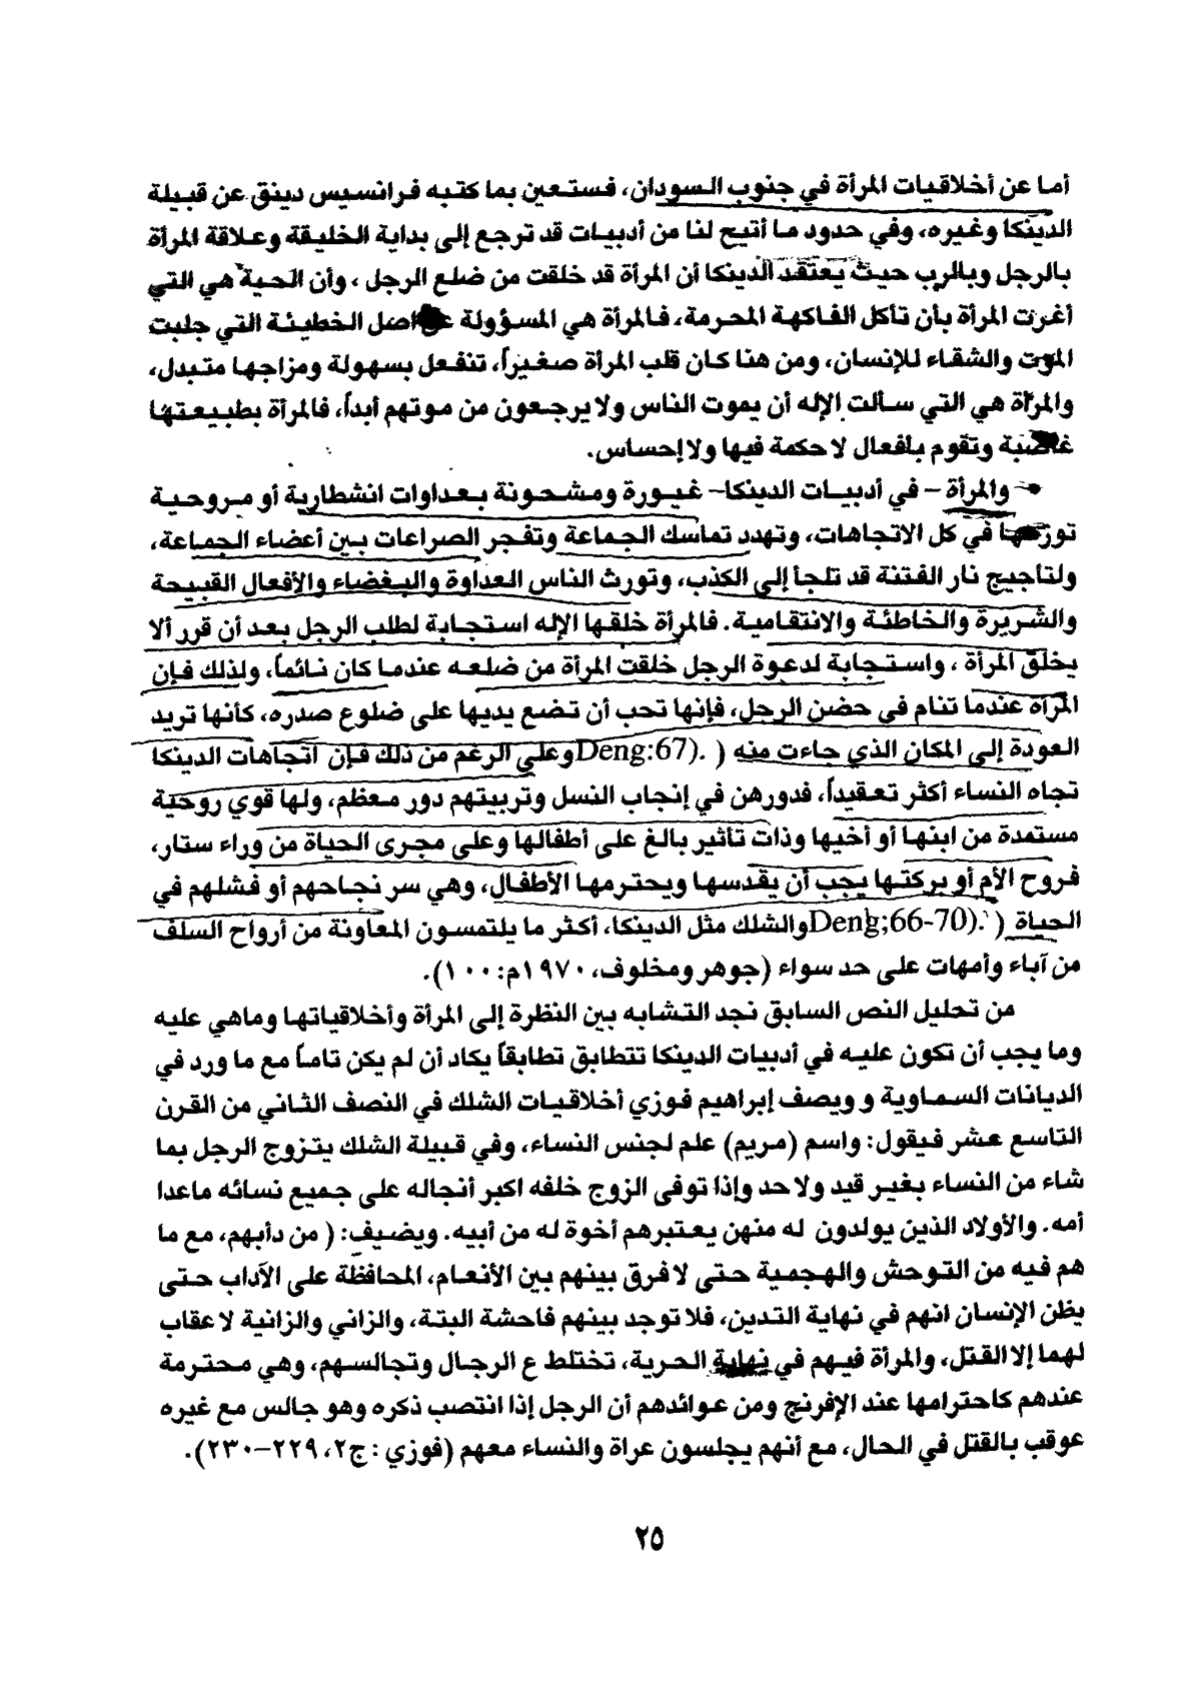 أما عن أخلاقيات المرأة في جنوب السودان، فستعين بما كتبه فرانسيس دينق عن قبيلة
الدينكا وغيره، وفي حدود ما أتيح لنا من أدبيات قد ترجع إلى بداية الخليقة وعلاقة المرأة
بالرجل وبالرب حيث يعتقد الدينكا أن المرأة قد خلقت من ضلع الرجل ، وأن الحية هي التي
أغرت المرأة بأن تأكل الفاكهة المحرمة، فالمرأة هي المسؤولة اصل الخطيئة التي جلبت
الموت والشقاء للإنسان، ومن هنا كان قلب المرأة صغيراً، تنفعل بسهولة ومزاجها متبدل،
والمرأة هي التي سألت الإله أن يموت الناس ولا يرجعون من موتهم أبداً، فالمرأة بطبيعتها
غاضبة وتقوم بافعال لا حكمة فيها ولا إحساس.
والمرأة – في أدبيات الدينكا– غيورة ومشحونة بعداوات انشطارية أو مروحية
في كل الاتجاهات، وتهدد تماسك الجماعة وتفجر الصراعات بين أعضاء الجماعة،
ولتاجيج نار الفتنة قد تلجأ إلى الكذب، وتورث الناس العداوة والبغضاء والأفعال القبيحة
والشريرة والخاطئة والانتقامية. فالمرأة خلقها الإله استجابة لطلب الرجل بعد أن قرر ألا
يخلق المرأة ، واستجابة لدعوة الرجل خلقت المرأة من ضلعه عندما كان نائماً، ولذلك فإن
المرأة عندما تنام في حضن الرجل، فإنها تحب أن تضع يديها على ضلوع صدره، كأنها تريد
العودة إلى المكان الذي جاءت منه ( .(Deng:67وعلى الرغم من ذلك فإن اتجاهات الدينكا
تجاه النساء أكثر تعقيداً، فدورهن في إنجاب النسل وتربيتهم دور معظم، ولها قوي روحية
مستمدة من ابنها أو أخيها وذات تأثير بالغ على أطفالها وعلى مجرى الحياة من وراء ستار،
فروح الأم أو بركتها يجب أن يقدسها ويحترمها الأطفال، وهي سر نجاحهم أو فشلهم في
الحياة ( .(Deng;66-70والشلك مثل الدينكا، أكثر ما يلتمسون المعاونة من أرواح السلف
من آباء وأمهات على حد سواء (جوهر ومخلوف، ١٩٧٠م: ١٠٠).
من تحليل النص السابق نجد التشابه بين النظرة إلى المرأة وأخلاقياتها وماهي عليه
وما يجب أن تكون عليه في أدبيات الدينكا تتطابق تطابقاً يكاد أن لم يكن تاماً مع ما ورد في
الديانات السماوية و ويصف إبراهيم فوزي أخلاقيات الشلك في النصف الثاني من القرن
التاسع عشر فيقول: واسم (مريم) علم لجنس النساء، وفي قبيلة الشلك يتزوج الرجل بما
شاء من النساء بغير قيد ولا حد وإذا توفى الزوج خلفه اكبر أنجاله على جميع نسائه ماعدا
أمه. والأولاد الذين يولدون له منهن يعتبرهم أخوة له من أبيه. ويضيف: ( من دأبهم، مع ما
هم فيه من التوحش والهجمية حتى لا فرق بينهم بين الأنعام، المحافظة على الآداب حتى
يظن الإنسان انهم في نهاية التدين، فلا توجد بينهم فاحشة البتة، والزاني والزانية لا عقاب
لهما إلا القتل، والمرأة فيهم في نهاية الحرية، تختلط ع الرجال وتجالسهم، وهي محترمة
عندهم كاحترامها عند الإفرنج ومن عوائدهم أن الرجل إذا انتصب ذكره وهو جالس مع غيره
عوقب بالقتل في الحال، مع أنهم يجلسون عراة والنساء معهم (فوزي : ج٢، ٢٢٩–٢٣٠).
٢٥